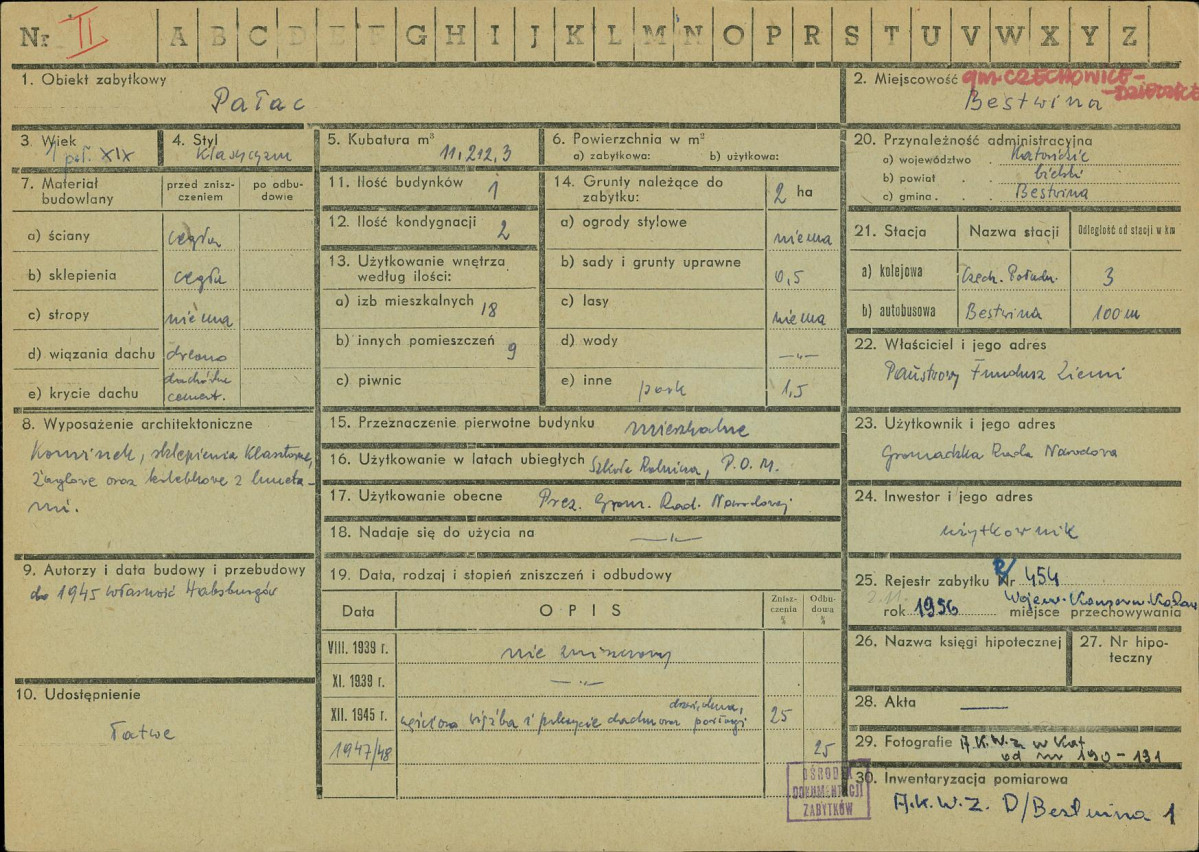 Nr II A B C D E F G H I J K L M N O P R S T U V W X Y Z
1. Obiekt zabytkowy
Pałac
2. Miejscowość gm. CZECHOWICE-
-DZIEDZICE
Bestwina
3. Wiek
1/ poł. XIX
4. Styl
Klasycyzm
5. Kubatura m³
11,212,3
6. Powierzchnia w m²
a) zabytkowa: b) użytkowa:
7. Materiał
budowlany
przed znisz-
czeniem
po odbu-
dowie
a) ściany cegła
b) sklepienia cegła
c) stropy niema
d) wiązania dachu drewno
e) krycie dachu dachówka
cement.
8. Wyposażenie architektoniczne
Kominek, sklepienia klasztorne,
żaglowe oraz kolebkowe z luneta-
mi.
9. Autorzy i data budowy i przebudowy
do 1945 własność Habsburgów
10. Udostępnienie
Łatwe
11. Ilość budynków 1
12. Ilość kondygnacji 2
13. Użytkowanie wnętrza
według ilości:
a) izb mieszkalnych 18
b) innych pomieszczeń 9
c) piwnic
14. Grunty należące do
zabytku: 2 ha
a) ogrody stylowe niema
b) sady i grunty uprawne 0,5
c) lasy niema
d) wody —„—
e) inne park 1,5
15. Przeznaczenie pierwotne budynku mieszkalne
16. Użytkowanie w latach ubiegłych Szkoła Rolnicza, P.O.M.
17. Użytkowanie obecne Prez. Grom. Rad. Narodowej
18. Nadaje się do użycia na —„—
19. Data, rodzaj i stopień zniszczeń i odbudowy
Data OPIS
Znisz-
czenia
%
Odbu-
dowa
%
VIII. 1939 r. nie zniszczony
XI. 1939 r. —„—
XII. 1945 r. częściowo więźba i pokrycie dachu oraz posłagi 25
1947/48 25
20. Przynależność administracyjna
a) województwo Katowice
b) powiat bielski
c) gmina Bestwina
21. Stacja Nazwa stacji Odległość od stacji w km
a) kolejowa Czech. Połudn. 3
b) autobusowa Bestwina 100 m
22. Właściciel i jego adres
Państwowy Fundusz Ziemi
23. Użytkownik i jego adres
Gromadzka Rada Narodowa
24. Inwestor i jego adres
użytkownik
25. Rejestr zabytku Nr 454
rok 1956 miejsce przechowywania
Wojew. Konserw. Katow
26. Nazwa księgi hipotecznej
27. Nr hipo-
teczny
28. Akta —
29. Fotografie A.K.W.Z. w Kat
od nr 190-191
30. Inwentaryzacja pomiarowa
A.K.W.Z. D/Bestwina 1
OŚRODEK
DOKUMENTACJI
ZABYTKÓW